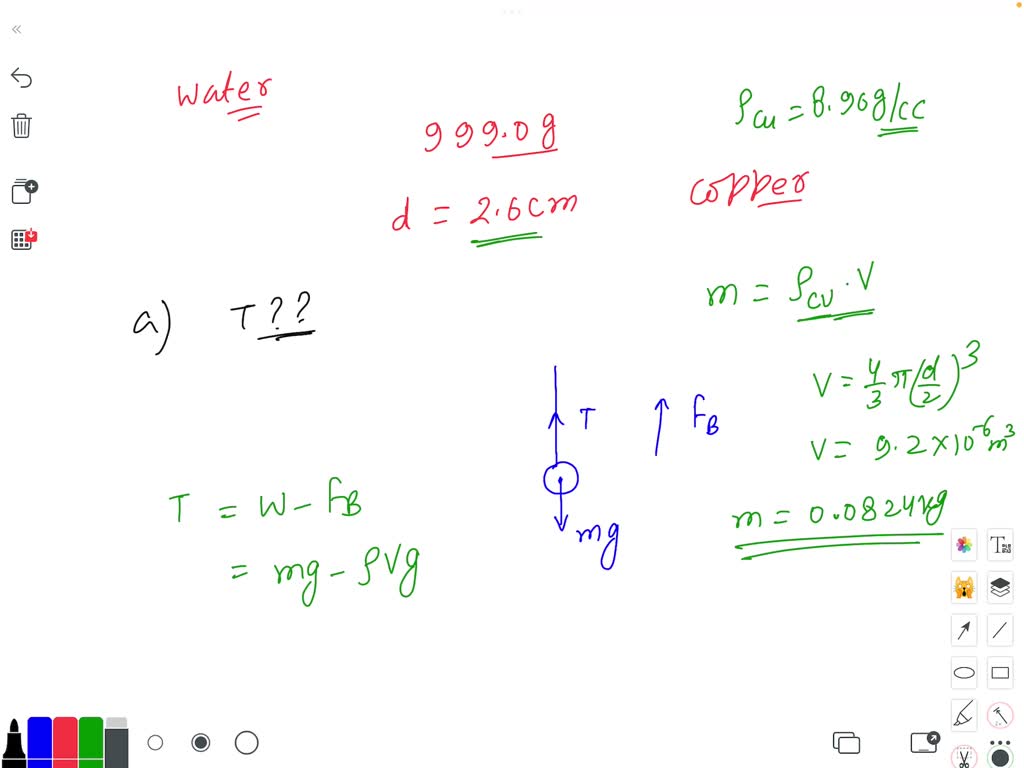 water
999.0g
d = 2.6cm
ρcu = 8.96g/cc
copper
a) T??
m = ρcu . V
V = 4/3 π(d/2)^3
V = 9.2×10^-6 m^3
m = 0.0824kg
T
FB
mg
T = W - FB
= mg - ρVg